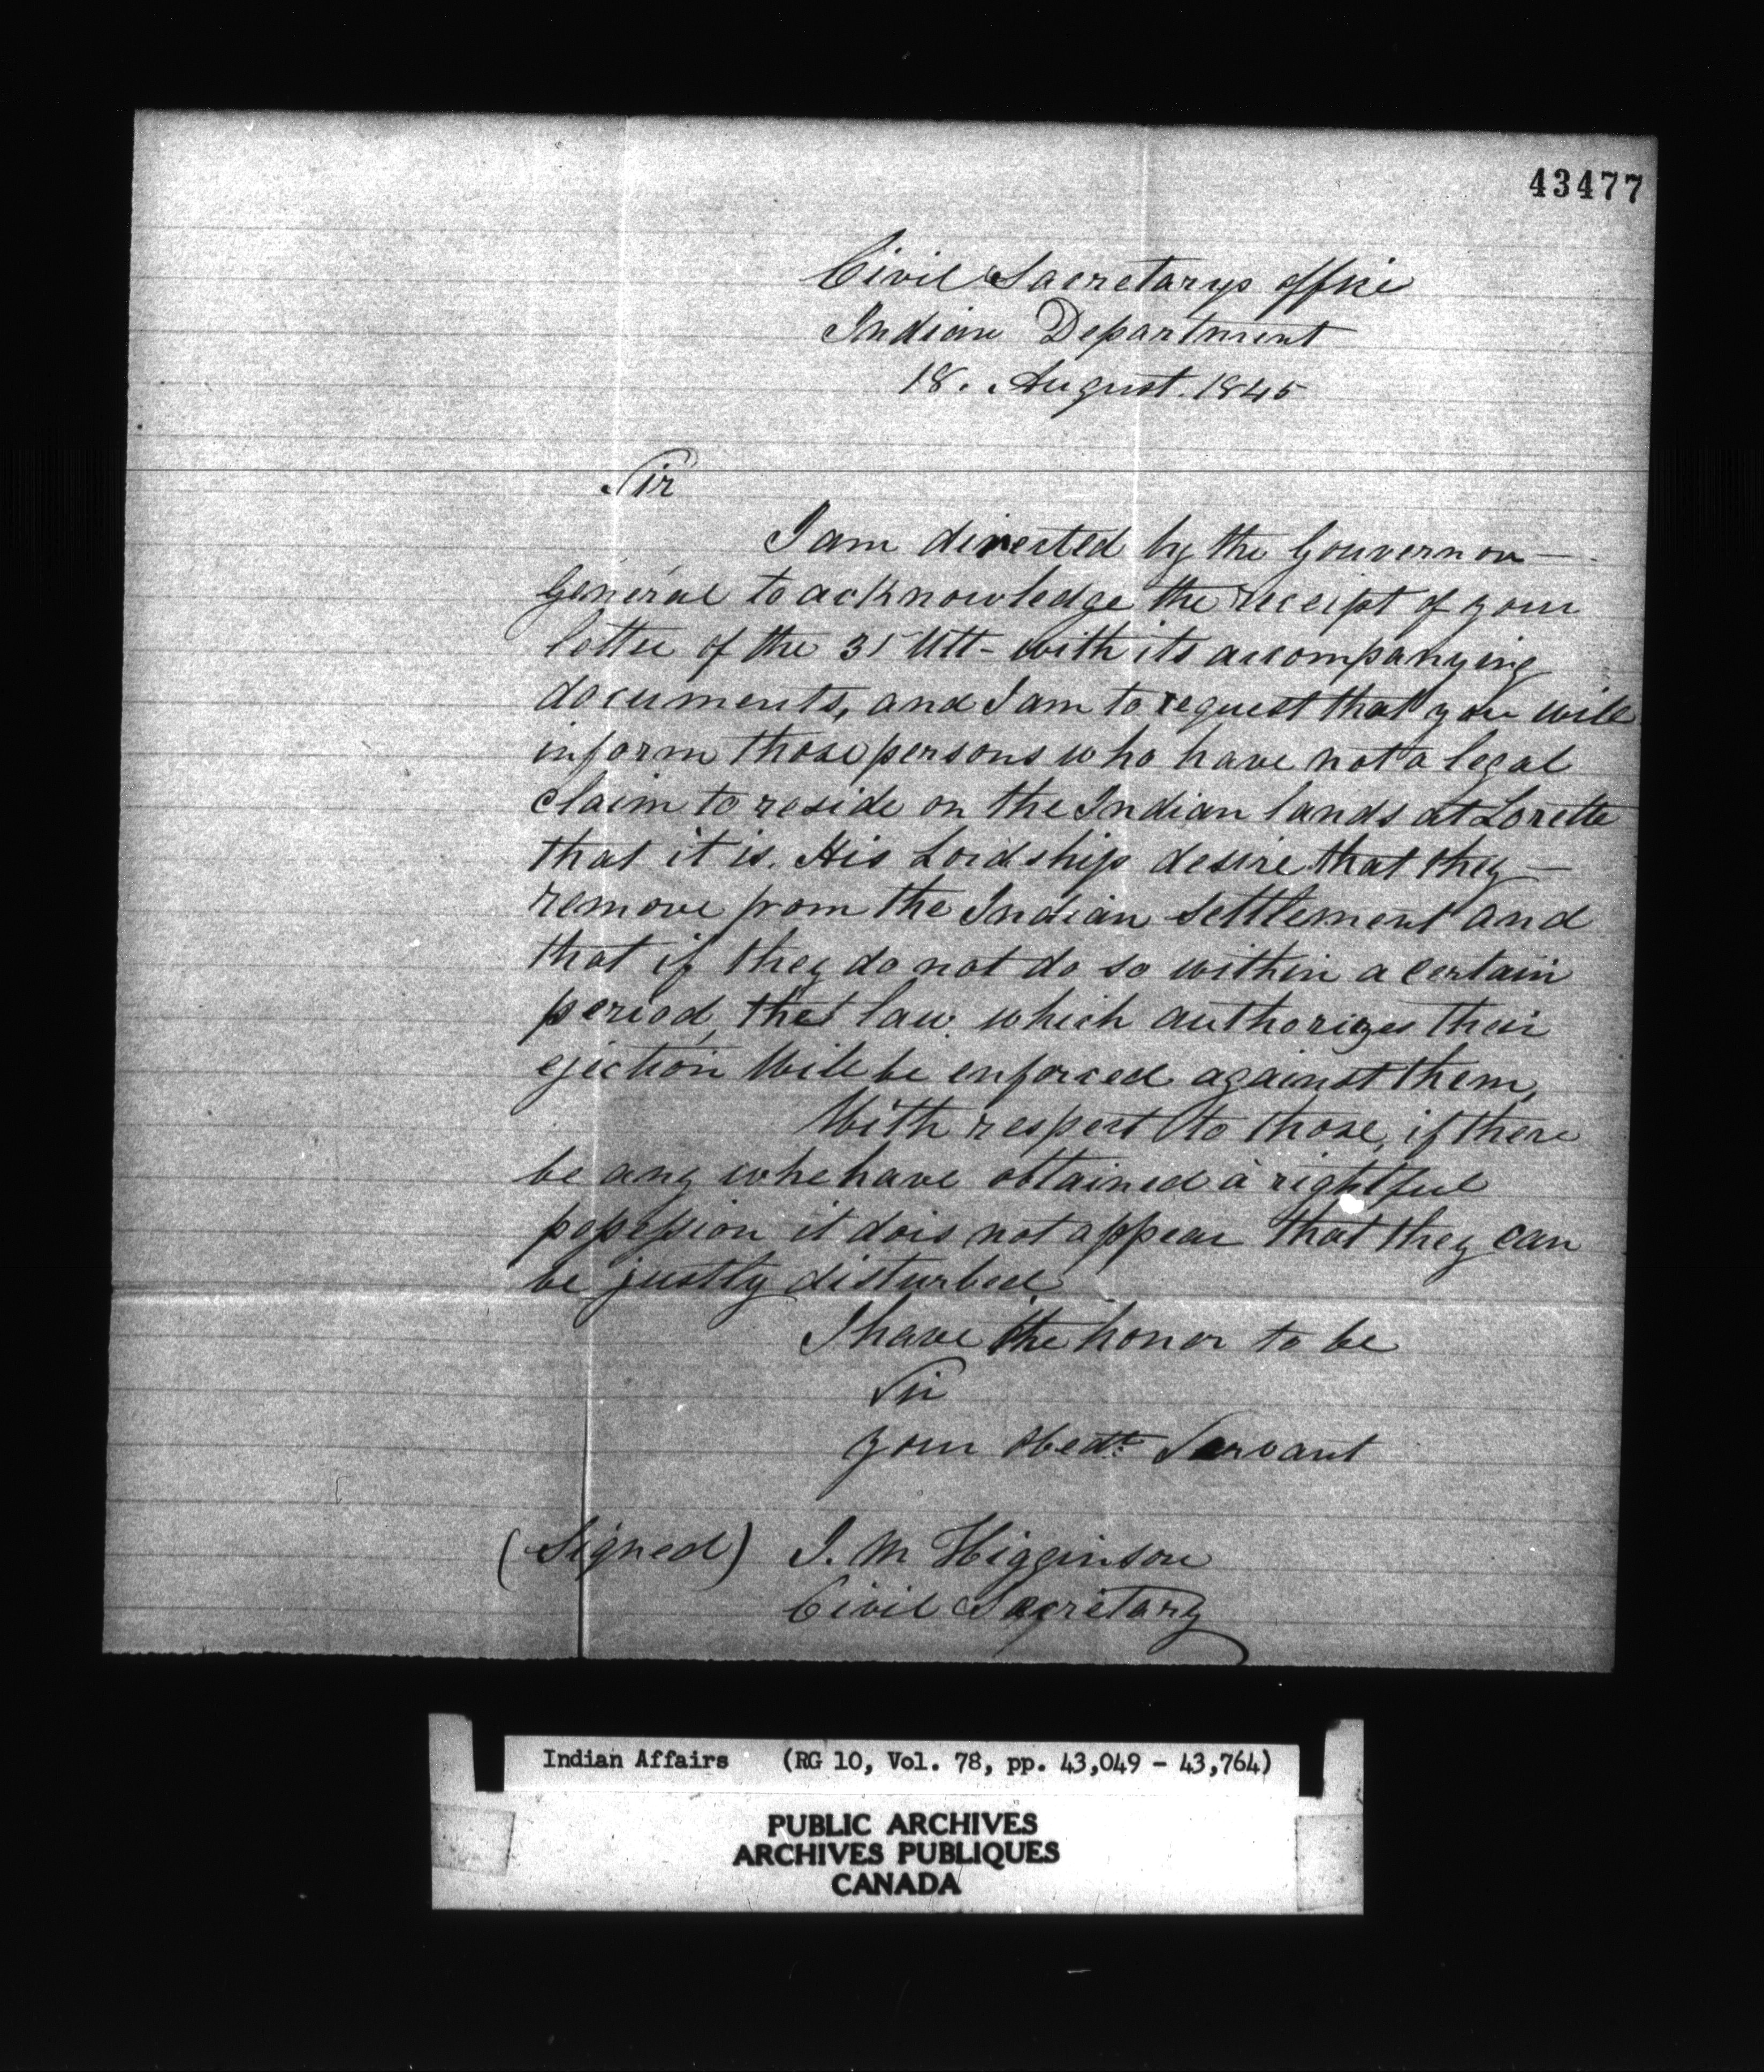 43477
Civil Sacretarys offkie
Indian Department
18. August. 1845
Sir
I am directed by the Gouvernor —
Général to acknowledge the receipt of your
letter of the 31 Ult - with its accompanying
documents, and I am to request that you will
inform those persons who have not a legal
claim to reside on the Indian lands at Lorette
that it is. His Lordship desire that they —
remove from the Indian Settlement and
that if they do not do so within a certain
period, the law which authorizes their
ejection Will be enforced against them,
With respect to those, if there
be any who have obtained à rightful
possession it dois not appear that they can
be justly disturbed.
I have the honor to be
Sir
your Obedt. Servant
(Signed) J. M Higginson
Civil Sacretary
Indian Affairs (RG 10, Vol. 78, pp. 43,049 - 43,764)
PUBLIC ARCHIVES
ARCHIVES PUBLIQUES
CANADA